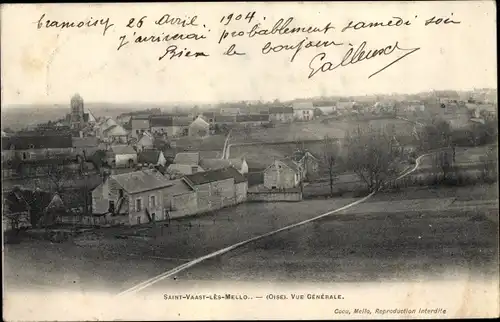 Cramoisy 26 Avril, 1904
j'arriverai probablement samedi soir
Bien le bonjour
SAINT-VAAST-LÈS-MELLO.. — (OISE). VUE GÉNÉRALE.
Cocu, Mello, Reproduction Interdite